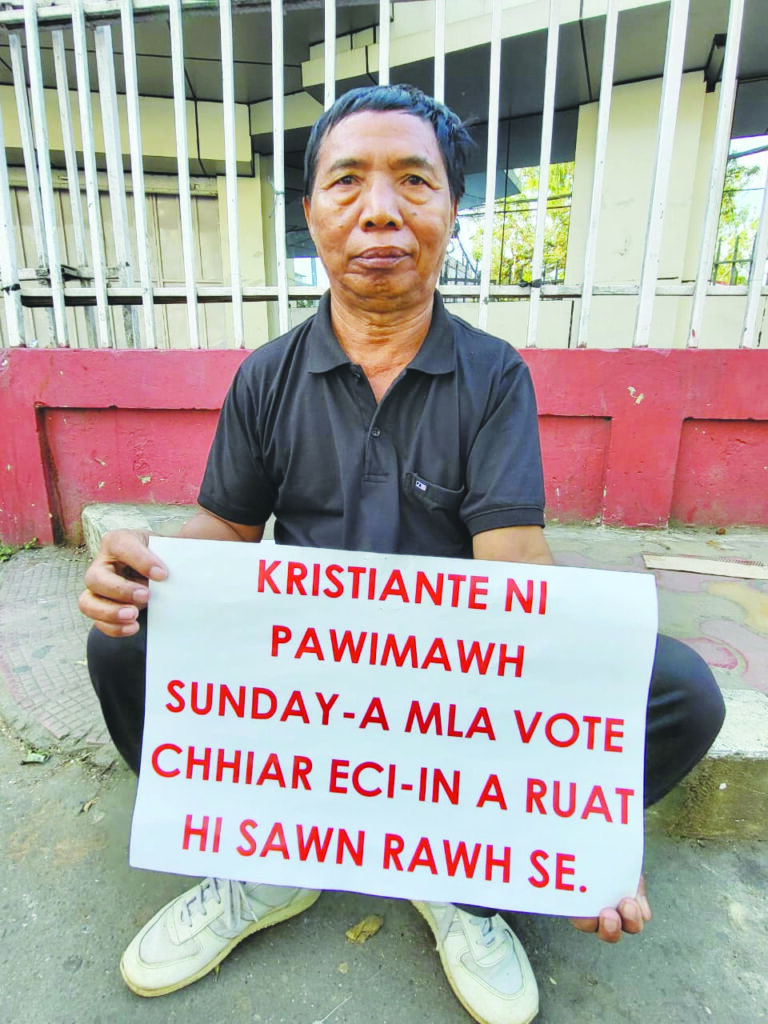 KRISTIANTE NI
PAWIMAWH
SUNDAY-A MLA VOTE
CHHIAR ECI-IN A RUAT
HI SAWN RAWH SE.